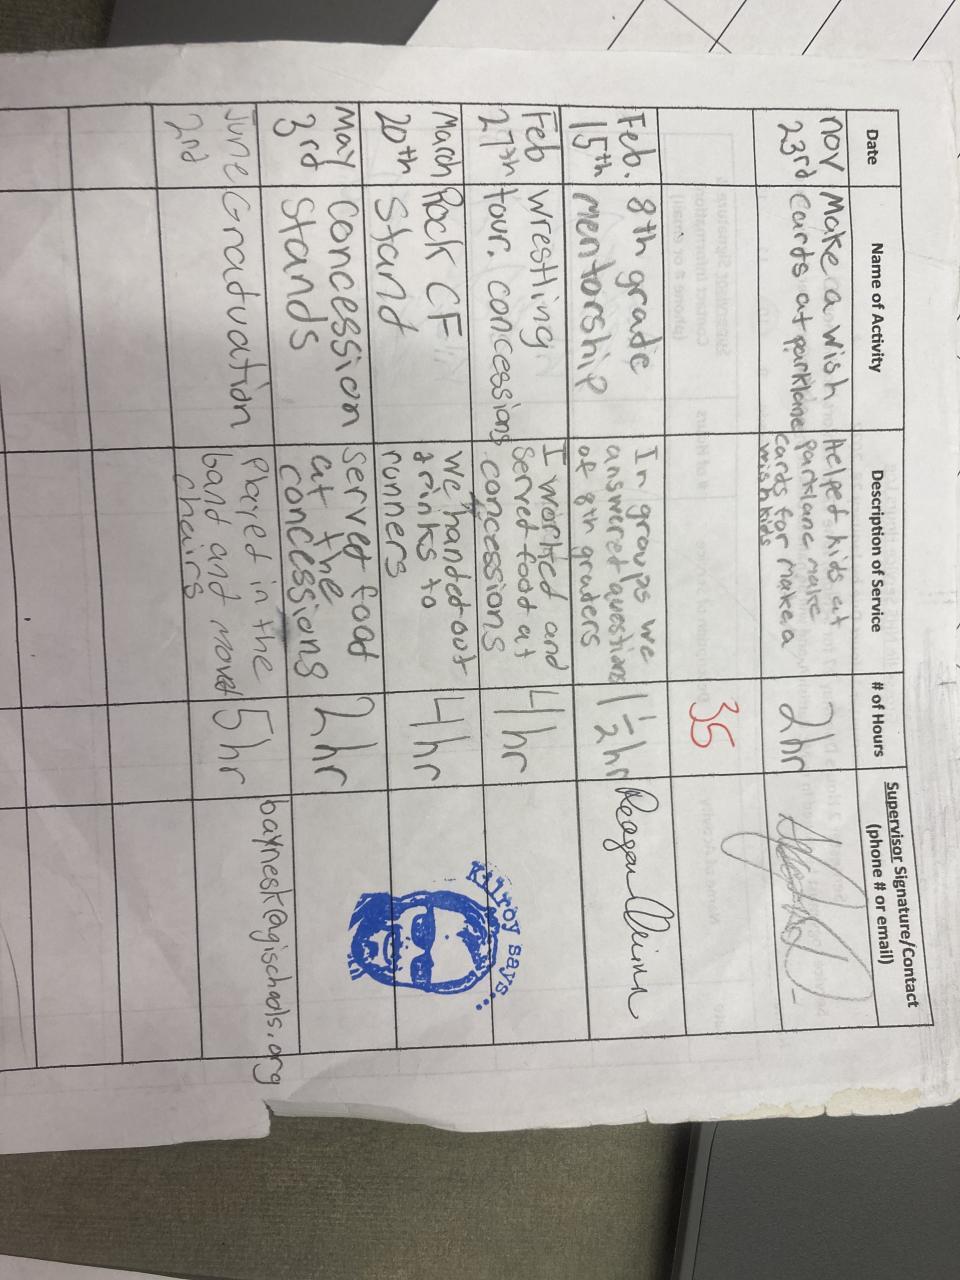 Date
Name of Activity
Description of Service
# of Hours
Supervisor Signature/Contact
(phone # or email)
nov
23rd
Make a wish
cards at parklane
Helped kids at
parklane make
cards for make a
wish kids
2 hr
35
Feb.
15th
8th grade
mentorship
In groups we
answered questions
of 8th graders
1 1/2 hr
Reagan
Feb
27th
wrestling
tour. concessions
I worked and
served food at
concessions
4 hr
Kilroy says...
March
20th
Rock CF
Stand
we handed out
drinks to
runners
4 hr
May
3rd
Concession
Stands
served food
at the
concessions
2 hr
June
2nd
Graduation
Played in the
band and moved
chairs
5 hr
baynesk@gischools.org